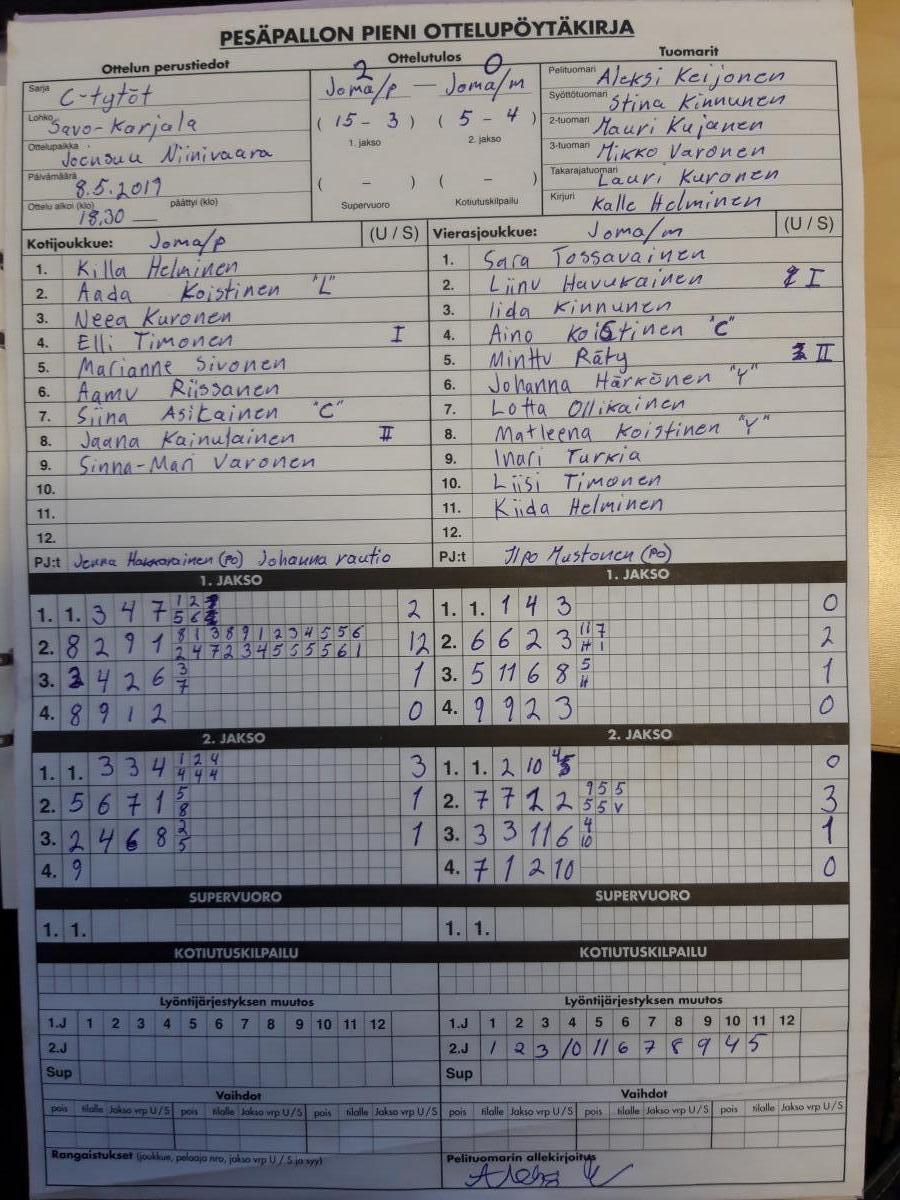 PESÄPALLON PIENI OTTELUPÖYTÄKIRJA
Ottelun perustiedot
Sarja C-tytöt
Lohko Savo-Karjala
Ottelupaikka Joensuu Niinivaara
Päivämäärä 8.5.2019
Ottelu alkoi (klo) 18.30 — päättyi (klo)
Ottelutulos
2 0
Joma/p — Joma/m
( 15 - 3 ) ( 5 - 4 )
1. jakso 2. jakso
( - ) ( - )
Supervuoro Kotiutuskilpailu
Tuomarit
Pelituomari Aleksi Keijonen
Syöttötuomari Stina Kinnunen
2-tuomari Mauri Kujanen
3-tuomari Mikko Varonen
Takarajatuomari Lauri Kuronen
Kirjuri Kalle Helminen
Kotijoukkue: Joma/p (U / S)
1. Killa Helminen
2. Aada Koistinen "L"
3. Neea Kuronen
4. Elli Timonen I
5. Marianne Sivonen
6. Aamu Riissanen
7. Siina Asikainen "C"
8. Jaana Kainulainen II
9. Sinna-Mari Varonen
10.
11.
12.
PJ:t Jenna (PO) Johanna rautio
Vierasjoukkue: Joma/m (U / S)
1. Sara Tossavainen
2. Liinu Havukainen I
3. Iida Kinnunen
4. Aino Koistinen "C"
5. Minttu Räty II
6. Johanna Härkönen "Y"
7. Lotta Ollikainen
8. Matleena Koistinen "Y"
9. Inari Turkia
10. Liisi Timonen
11. Kiida Helminen
12.
PJ:t Ilpo Mustonen (PO)
1. JAKSO
1. 1. 3 4 7 1 2 2
5 6
2. 8 2 9 1 8 1 3 8 9 1 2 3 4 5 5 6 12
2 4 7 2 3 4 5 5 5 5 6 1
3. 3 4 2 6 3 1
7
4. 8 9 1 2 0
1. JAKSO
1. 1. 1 4 3 0
2. 6 6 2 3 11 7 2
11 1
3. 5 11 6 8 5 1
11
4. 9 9 2 3 0
2. JAKSO
1. 1. 3 3 4 1 2 4 3
4 4 4
2. 5 6 7 1 5 1
8
3. 2 4 6 8 2 1
5
4. 9
2. JAKSO
1. 1. 2 10 4 5 0
2. 7 7 1 2 9 5 5 3
5 5 V
3. 3 3 11 6 4 1
10
4. 7 1 2 10 0
SUPERVUORO
1. 1.
SUPERVUORO
1. 1.
KOTIUTUSKILPAILU
KOTIUTUSKILPAILU
Lyöntijärjestyksen muutos
1.J 1 2 3 4 5 6 7 8 9 10 11 12
2.J
Sup
Lyöntijärjestyksen muutos
1.J 1 2 3 4 5 6 7 8 9 10 11 12
2.J 1 2 3 10 11 6 7 8 9 4 5
Sup
Vaihdot
pois tilalle Jakso vrp U / S pois tilalle Jakso vrp U / S pois tilalle Jakso vrp U / S
Vaihdot
pois tilalle Jakso vrp U / S pois tilalle Jakso vrp U / S pois tilalle Jakso vrp U / S
Rangaistukset (joukkue, pelaaja nro, jakso vrp U / S ja syy)
Pelituomarin allekirjoitus